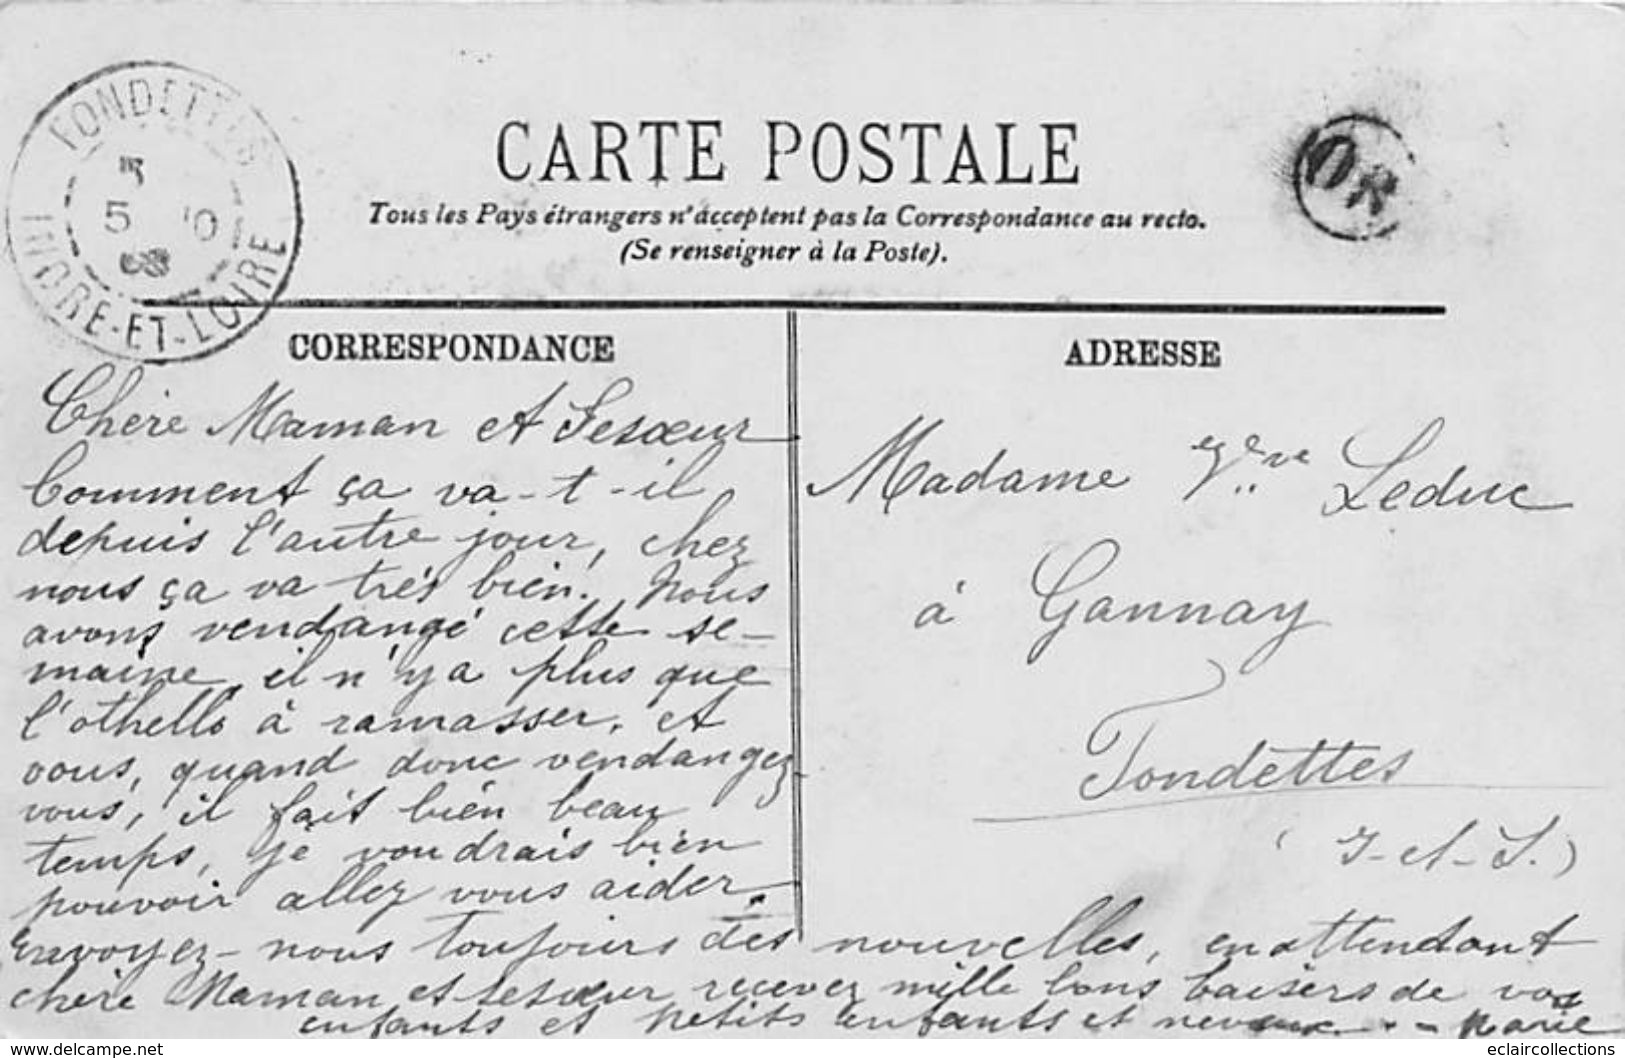 FONDETTES
5 10
08
INDRE-ET-LOIRE
CARTE POSTALE
OR
Tous les Pays étrangers n'acceptent pas la Correspondance au recto.
(Se renseigner à la Poste).
CORRESPONDANCE
Chère Maman et Sesœur
Comment ça va-t-il
depuis l'autre jour, chez
nous ça va très bien. Nous
avons vendangé cette se-
maine, il n'y a plus que
l'othello à ramasser. et
vous, quand donc vendangez
vous, il fait bien beau
temps, je voudrais bien
pouvoir allez vous aider.
Envoyez-nous toujours des nouvelles, en attendant
chère Maman et sesœur recevez mille bons baisers de vos
enfants et petits enfants et neveux. - Marie
ADRESSE
Madame Vve Leduc
à Gannay
Fondettes
(I-et-L.)
www.delcampe.net
eclaircollections